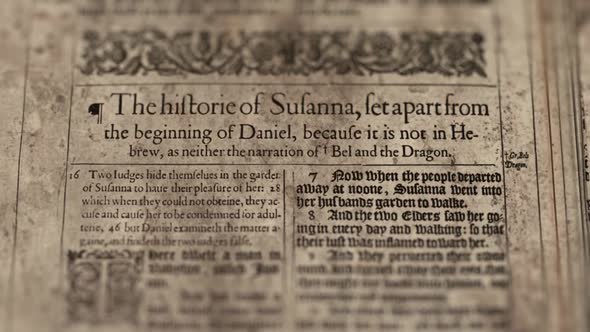 ¶ The historie of Susanna, set apart from
the beginning of Daniel, because it is not in He-
brew, as neither the narration of † Bel and the Dragon.
† Or Bels
Dragon.
16 Two Iudges hide themselues in the garden
of Susanna to haue their pleasure of her: 28
which when they could not obteine, they ac-
cuse and cause her to be condemned for adul-
terie, 46 but Daniel examineth the matter a-
gaine, and findeth the two iudges false.
There dwelt a man in
7 Now when the people departed
away at noone, Susanna went into
her husbands garden to walke.
8 And the two Elders saw her go-
ing in euery day and walking: so that
their lust was inflamed toward her.
9 And they peruerted their owne